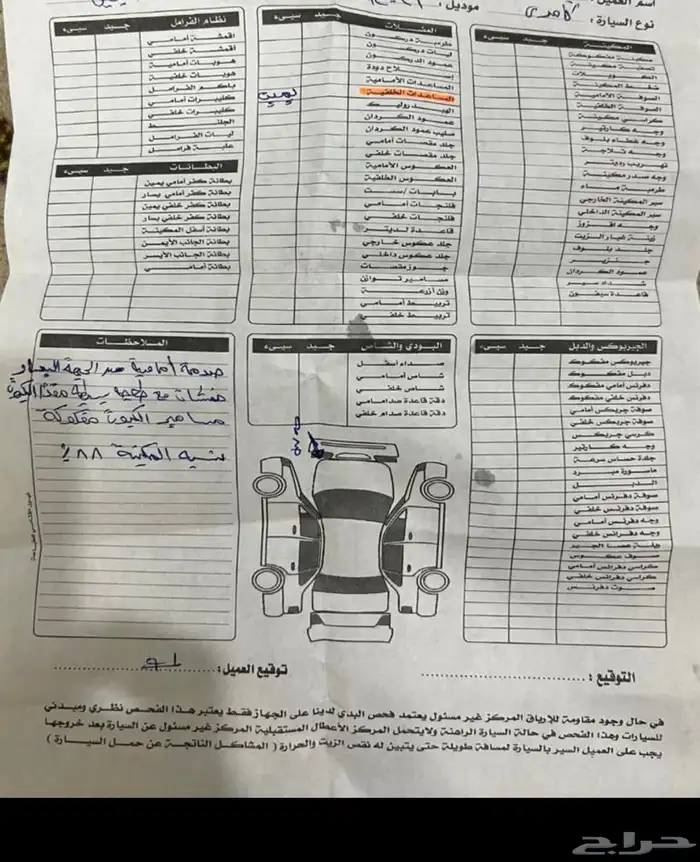 اسم العميل:
نوع السيارة: كامري
موديل:
المكينة جيد سيىء
مكينة مفكوكة
تسكية مكينة
الكويلات
شلمط المكينة
الصوفة الأمامية
الصوفة الخلفية
كراسي مكينة
وجه كارتير
وجه غطاء بلوف
وجه ثلاجة
تهريب رديتر
وجه صدر مكينة
طرمبة ماء
سير المكينة الخارجي
سير المكينة الداخلي
وجه افزوز
زينة غيار الزيت
جلد بلوف
جنزير
عمود الكردان
شداد سير
قاعدة سيفون
العفلات جيد سيىء
طرمبة دركون
ليات دركون
عمود الدركون
إصلاح دودة
المساعدات الأمامية
المساعدات الخلفية يميت
الهيدروليك
عمود الكردان
صليب عمود الكردان
جلد مقصات أمامي
جلد مقصات خلفي
العكوس الأمامية
العكوس الخلفية
ببابات إستت
فلنجات أمامي
فلنجات خلفي
قاعدة لديتر
جلد عكوس خارجي
جلد عكوس داخلي
جوز مقصات
مسامير توازن
وزن أذرعة
تربيط أمامي
تربيط خلفي
نظام الفرامل جيد سيىء
اقمشة أمامي
اقمشة خلفي
هوبات أمامية
هوبات خلفية
باكم الفرامل
كليبرات أمامي
كليبرات خلفي
الجلنط
ليات الفرامل
علبة فرامل
البطانات جيد سيىء
بطانة كفر أمامي يمين
بطانة كفر أمامي يسار
بطانة كفر خلفي يمين
بطانة كفر خلفي يسار
بطانة أسفل المكينة
بطانة الجانب الأيمن
بطانة الجانب الأيسر
بطانة أمامي
الجيربوكس والدبل جيد سيىء
جيربوكس مفكوك
دبل مفكوك
دفرنس أمامي مفكوك
دفرنس خلفي مفكوك
صوفة جربكس أمامي
صوفة جربكس خلفي
كرسي جربكس
وجه كارتير
جلدة حساس سرعة
ماصورة مبرد
الدبل
صوفة دفرنس أمامي
صوفة دفرنس خلفي
وجه دفرانس أمامي
وجه دفرانس خلفي
جلدة عصا الجير
صوف عكوس
كراسي دفرانس أمامي
كراسي دفرانس خلفي
صوت دفرنس
البودي والشاص جيد سيىء
صداء أسفل
شاص أمامي
شاص خلفي
دقة قاعدة صدامي
دقة قاعدة صدام خلفي
الملاحظات
صدمة أمامية من الجهة اليسار
مع طعجة بسيطة مقدمة الكبوت
مسامير الكبوت مفكوكة
نسبة المكينة ٨٨٪
التوقيع :
توقيع العميل :
في حال وجود مقاومة للإرياق المركز غير مسئول يعتمد فحص البدي لدينا على الجهاز فقط يعتبر هذا الفحص نظري ومبدئي
للسيارات وهذا الفحص في حالة السيارة الراهنة ولايتحمل المركز الأعطال المستقبلية المركز غير مسئول عن السيارة بعد خروجها
يجب على العميل السير بالسيارة لمسافة طويلة حتى يتبين له نقص الزيت والحرارة ( المشاكل الناتجة عن حمل السيارة )
حراج